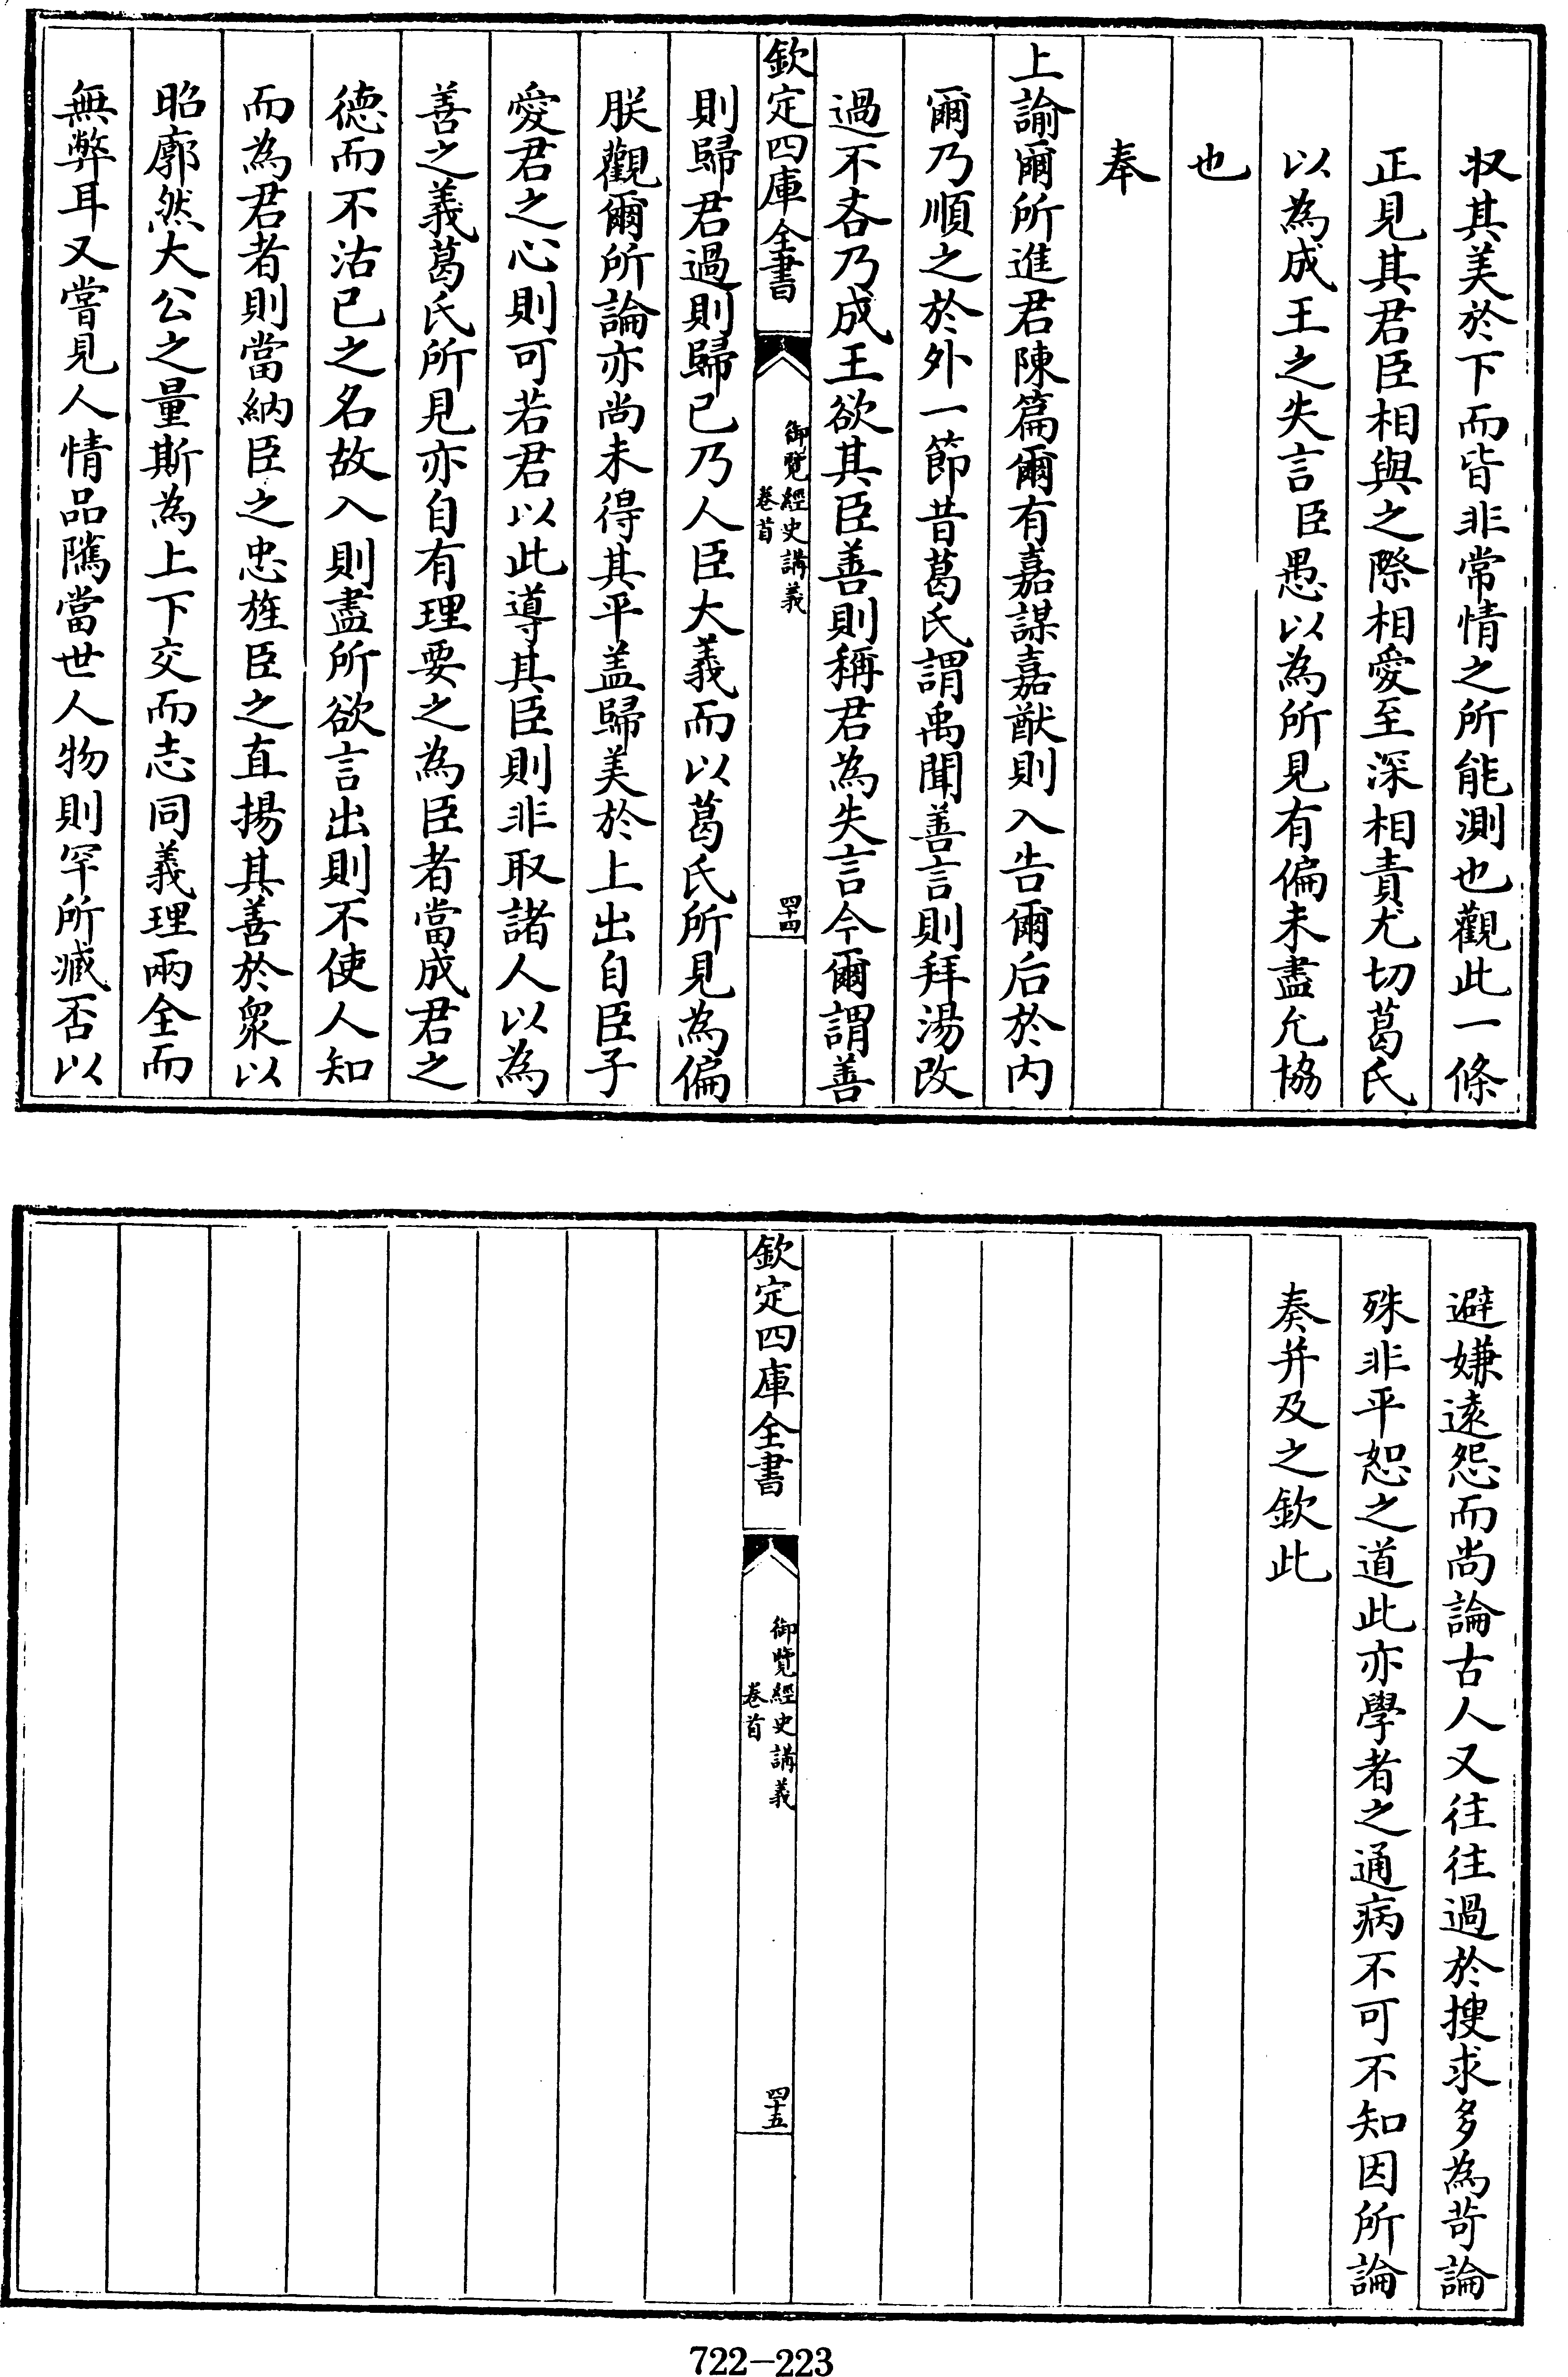 収其美於下而皆非常情之所能測也觀此一條
正見其君臣相與之際相愛至深相責尤切葛氏
以為成王之失言臣愚以為所見有偏未盡允協
也
奉
上諭爾所進君陳篇爾有嘉謀嘉猷則入告爾后於内
爾乃順之於外一節昔葛氏謂禹聞善言則拜湯改
過不吝乃成王欲其臣善則稱君為失言今爾謂善
欽定四庫全書
御覽經史講義
卷首
四十四
則歸君過則歸已乃人臣大義而以葛氏所見為偏
朕觀爾所論亦尚未得其平盖歸美於上出自臣子
愛君之心則可若君以此導其臣則非取諸人以為
善之義葛氏所見亦自有理要之為臣者當成君之
德而不沽已之名故入則盡所欲言出則不使人知
而為君者則當納臣之忠旌臣之直揚其善於衆以
昭廓然大公之量斯為上下交而志同義理兩全而
無弊耳又嘗見人情品隲當世人物則罕所臧否以
避嫌遠怨而尚論古人又往往過於搜求多為苛論
殊非平恕之道此亦學者之通病不可不知因所論
奏并及之欽此
欽定四庫全書
御覽經史講義
卷首
四十五
722-223